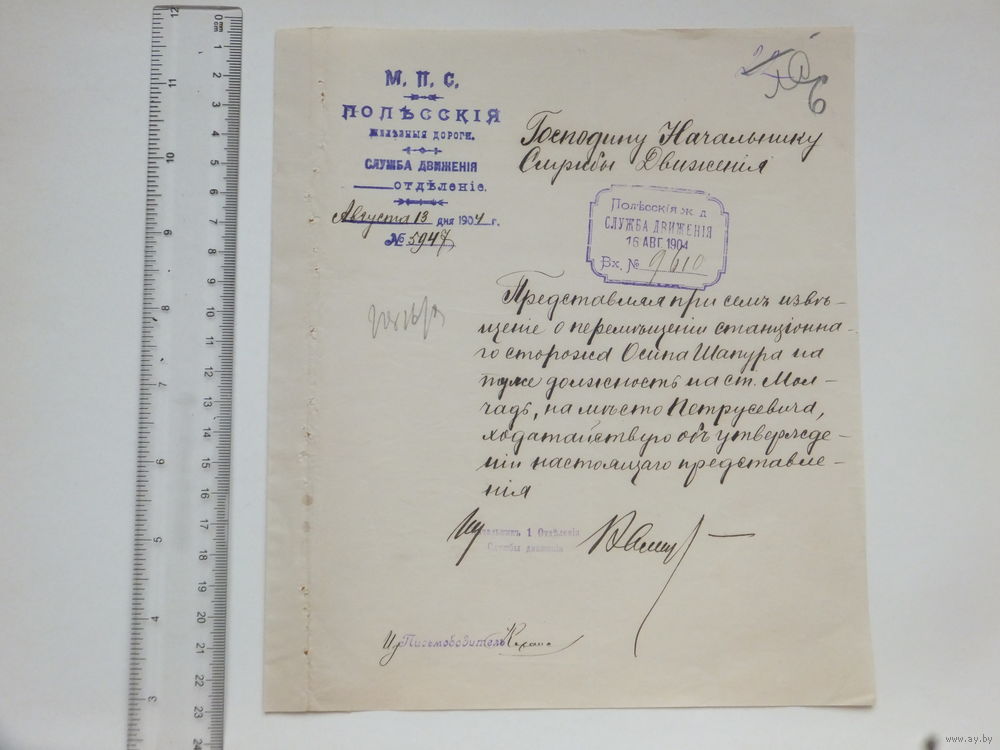 М. П. С.
ПОЛѢССКІЯ
ЖЕЛѢЗНЫЯ ДОРОГИ.
СЛУЖБА ДВИЖЕНІЯ
отдѣленіе.
Августа 13 дня 1904 г.
№ 5947
Господину Начальнику
Службы Движенія
Полѣсскія ж. д
СЛУЖБА ДВИЖЕНІЯ
16 АВГ 1904
Вх. № 9610
Представляя при семъ извѣ-
щеніе о перемѣщеніи станціонна-
го сторожа Осипа Шапура на
туже должность на ст. Мол-
чадь, на мѣсто Петрусевича,
ходатайствую объ утвержде-
ніи настоящаго представле-
нія
Начальникъ 1 Отдѣленія
Службы движенія
Письмоводитель
0 mm
cm
1
2
3
4
5
6
7
8
9
10
11
12
13
14
15
16
17
18
19
20
21
22
23
24
12
11
10
9
8
7
6
5
4
3
www.ay.by